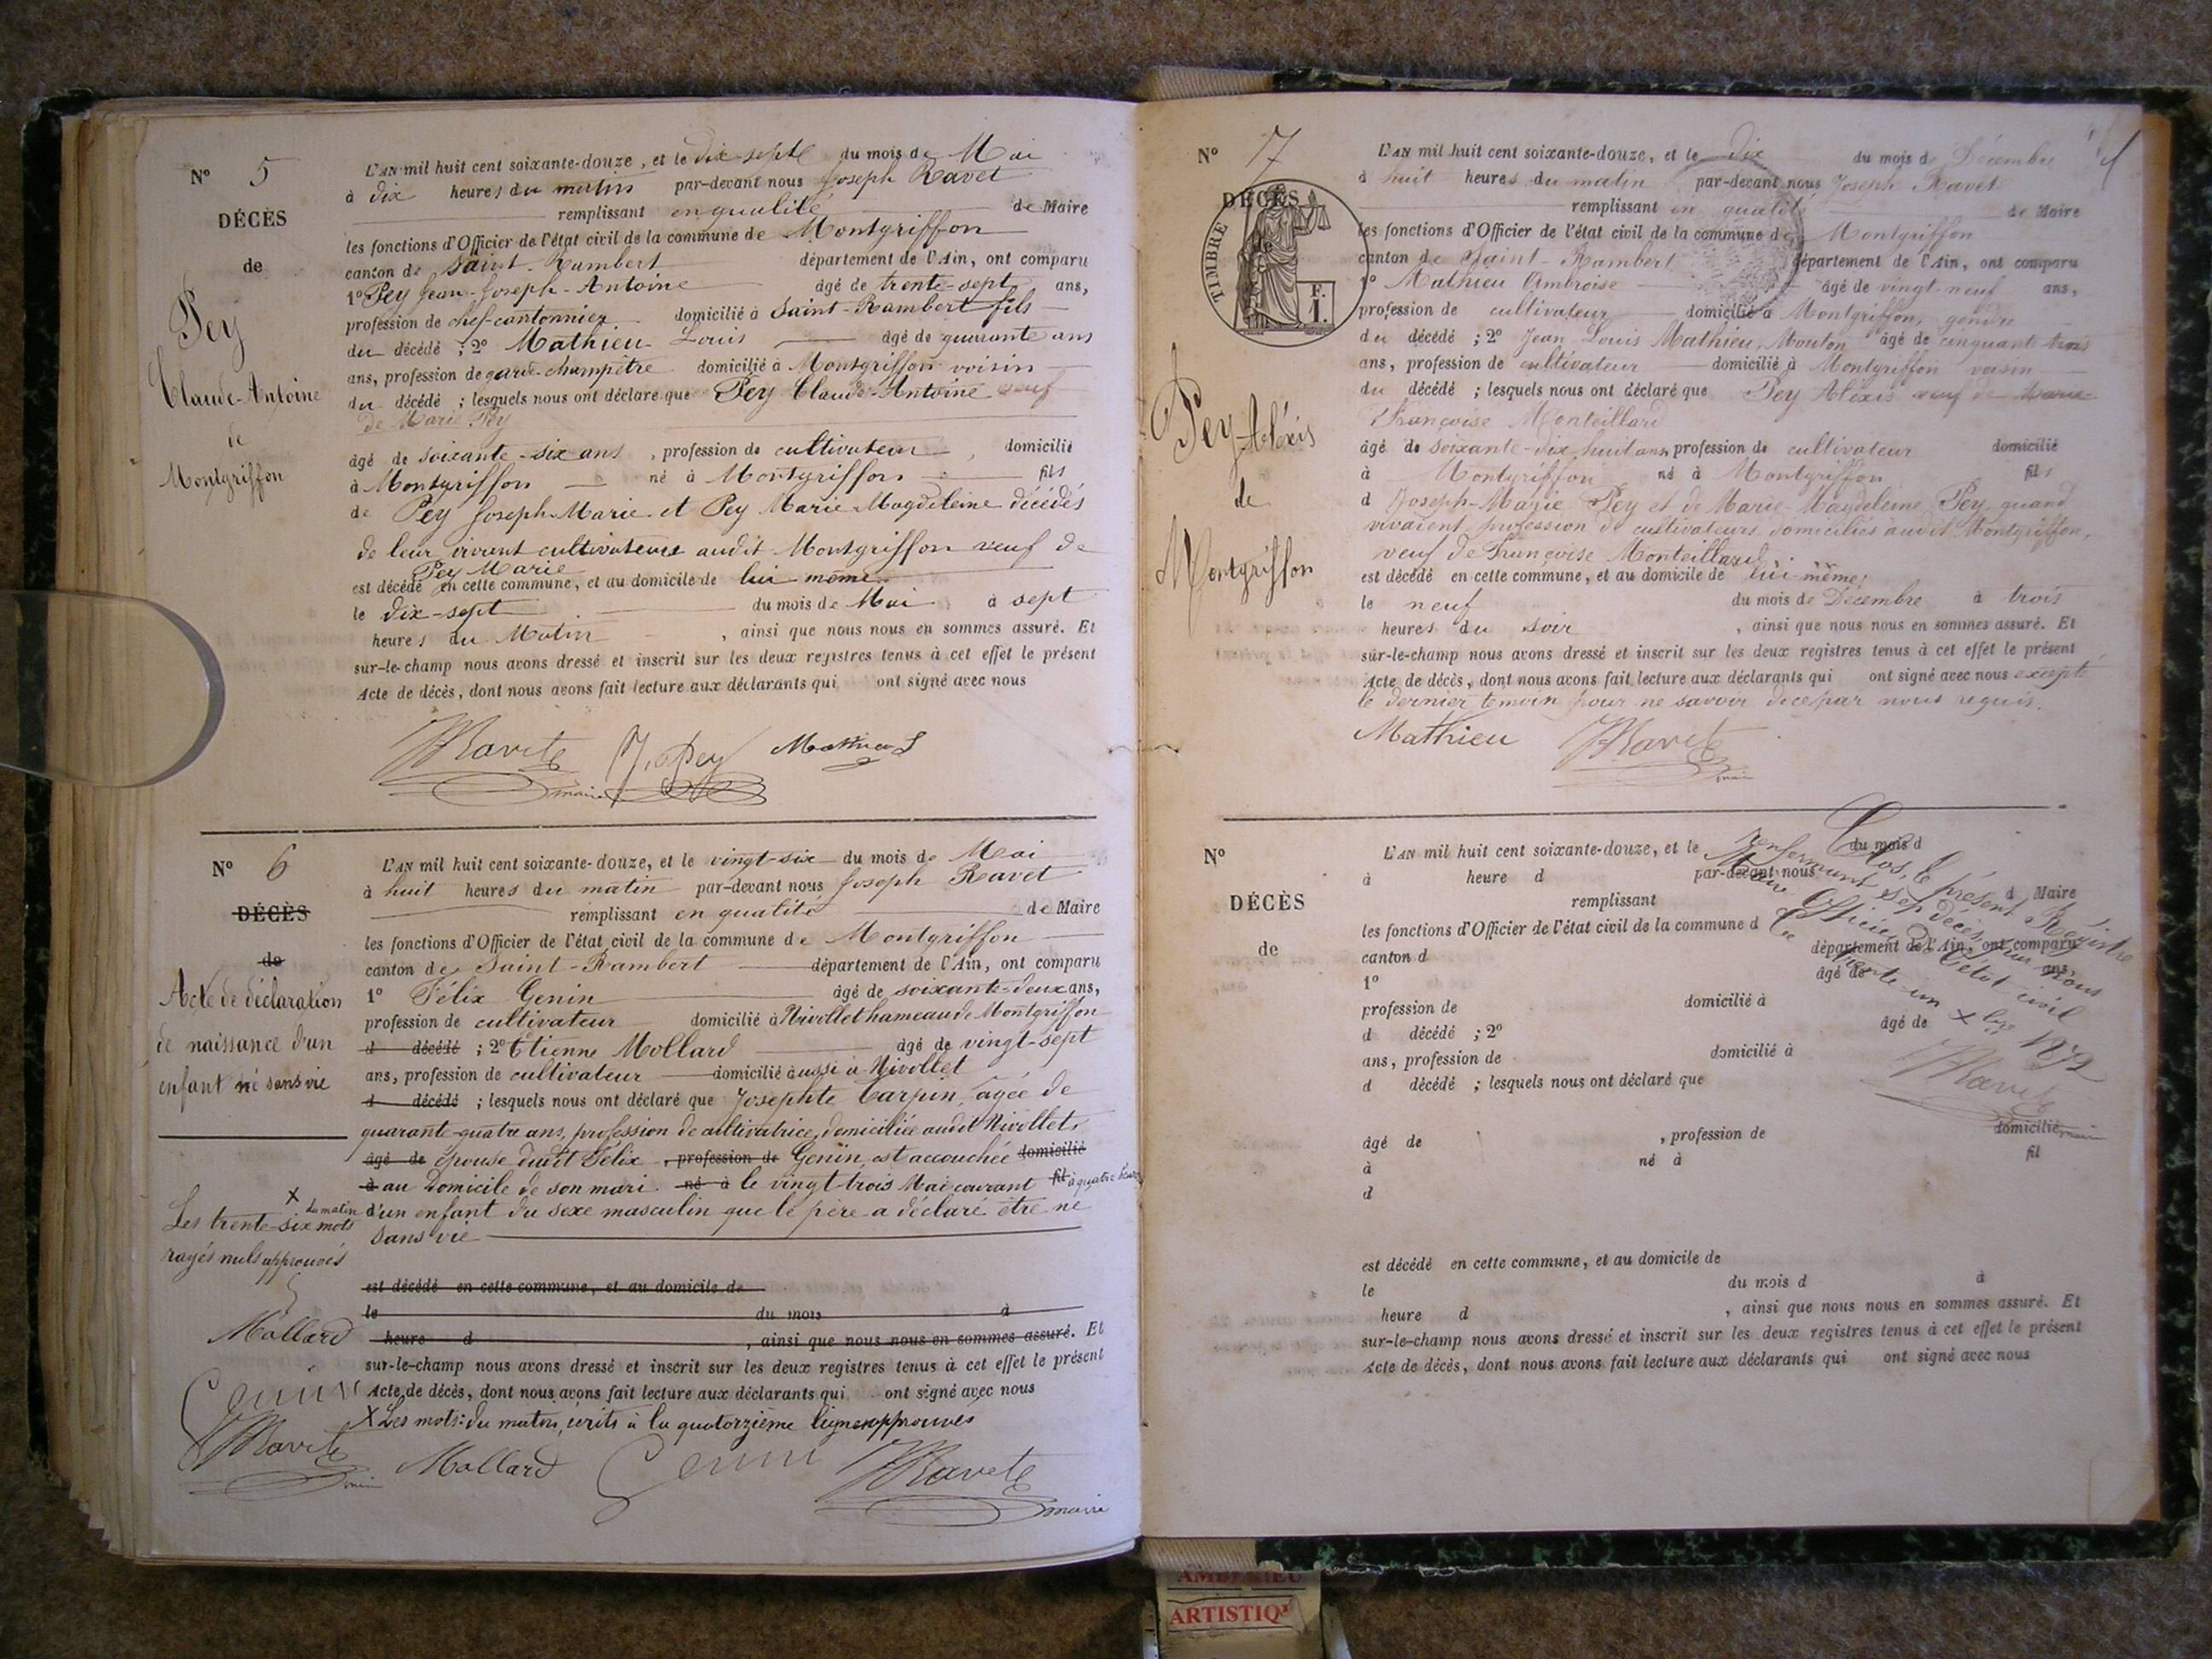 N° 5
DÉCÈS
de
Pey
Claude-Antoine
de
Montgriffon
L'AN mil huit cent soixante-douze, et le dix-sept du mois de Mai
à dix heures du matin par-devant nous Joseph Ravet
remplissant en qualité de Maire
les fonctions d'Officier de l'état civil de la commune de Montgriffon
canton de Saint-Rambert département de l'Ain, ont comparu
1° Pey Jean-Joseph-Antoine âgé de trente-sept ans,
profession de chef-cantonnier domicilié à Saint-Rambert fils
du décédé ; 2° Mathieu Louis âgé de quarante ans
ans, profession de garde-champêtre domicilié à Montgriffon voisin
du décédé ; lesquels nous ont déclaré que Pey Claude-Antoine veuf
de Marie Pey
âgé de soixante-six ans, profession de cultivateur, domicilié
à Montgriffon né à Montgriffon fils
de Pey Joseph-Marie et Pey Marie Magdeleine décédés
de leur vivant cultivateurs audit Montgriffon veuf de
Pey Marie
est décédé en cette commune, et au domicile de lui même
le dix-sept du mois de Mai à sept
heures du Matin, ainsi que nous nous en sommes assuré. Et
sur-le-champ nous avons dressé et inscrit sur les deux registres tenus à cet effet le présent
Acte de décès, dont nous avons fait lecture aux déclarants qui ont signé avec nous
JRavet J. Pey Mathieu L
maire
N° 6
DÉCÈS
de
Acte de déclaration
de naissance d'un
enfant né sans vie
L'AN mil huit cent soixante-douze, et le vingt-six du mois de Mai
à huit heures du matin par-devant nous Joseph Ravet
remplissant en qualité de Maire
les fonctions d'Officier de l'état civil de la commune de Montgriffon
canton de Saint-Rambert département de l'Ain, ont comparu
1° Félix Genin âgé de soixante-deux ans,
profession de cultivateur domicilié à Nivollet hameau de Montgriffon
d décédé ; 2° Etienne Mollard âgé de vingt-sept
ans, profession de cultivateur domicilié aussi à Nivollet
d décédé ; lesquels nous ont déclaré que Josephte Carpin, âgée de
quarante-quatre ans, profession de cultivatrice, domiciliée audit Nivollet,
âgé de épouse dudit Félix, profession de Genin, est accouchée domicilié
à au domicile de son mari né à le vingt trois Mai courant fil à quatre heures
X du matin d'un enfant du sexe masculin que le père a déclaré être né
sans vie
Les trente-six mots
rayés nuls approuvés
est décédé en cette commune, et au domicile de
le du mois à
heure d, ainsi que nous nous en sommes assuré. Et
sur-le-champ nous avons dressé et inscrit sur les deux registres tenus à cet effet le présent
Acte de décès, dont nous avons fait lecture aux déclarants qui ont signé avec nous
X Les mots: du matin, écrits à la quatorzième ligne approuvés
Mollard
Genin
JRavet
maire
Mollard Genin JRavet
maire
N° 7
DÉCÈS
de
TIMBRE
F.
1.
Pey Aléxis
de
Montgriffon
L'AN mil huit cent soixante-douze, et le dix du mois de Décembre
à huit heures du matin par-devant nous Joseph Ravet
remplissant en qualité de Maire
les fonctions d'Officier de l'état civil de la commune de Montgriffon
canton de Saint-Rambert département de l'Ain, ont comparu
1° Mathieu Ambroise âgé de vingt-neuf ans,
profession de cultivateur domicilié à Montgriffon, gendre
du décédé ; 2° Jean-Louis Mathieu-Mouton âgé de cinquante trois
ans, profession de cultivateur domicilié à Montgriffon voisin
du décédé ; lesquels nous ont déclaré que Pey Aléxis veuf de Marie
Françoise Monteillard
âgé de soixante-dix-huit ans, profession de cultivateur domicilié
à Montgriffon né à Montgriffon fils
d Joseph-Marie Pey et de Marie Magdeleine Pey, quand
vivaient, profession de cultivateurs domiciliés audit Montgriffon,
veuf de Françoise Monteillard,
est décédé en cette commune, et au domicile de lui-même,
le neuf du mois de Décembre à trois
heures du soir, ainsi que nous nous en sommes assuré. Et
sur-le-champ nous avons dressé et inscrit sur les deux registres tenus à cet effet le présent
Acte de décès, dont nous avons fait lecture aux déclarants qui ont signé avec nous excepté
le dernier témoin pour ne savoir de ce par nous requis.
Mathieu JRavet
maire
N°
DÉCÈS
de
L'AN mil huit cent soixante-douze, et le du mois d
à heure d par-devant nous
remplissant d Maire
les fonctions d'Officier de l'état civil de la commune d
canton d département de l'Ain, ont comparu
1° âgé de ans,
profession de domicilié à
d décédé ; 2° âgé de
ans, profession de domicilié à
d décédé ; lesquels nous ont déclaré que
âgé de, profession de domicilié
à né à fil
d
est décédé en cette commune, et au domicile de
le du mois d à
heure d, ainsi que nous nous en sommes assuré. Et
sur-le-champ nous avons dressé et inscrit sur les deux registres tenus à cet effet le présent
Acte de décès, dont nous avons fait lecture aux déclarants qui ont signé avec nous
Clos, le présent Régistre
renfermant sep décès, par nous
Maire Officier de l'état civil
Ce trente-un Xbre 1872
JRavet
maire
AMBERIEU
ARTISTIQ